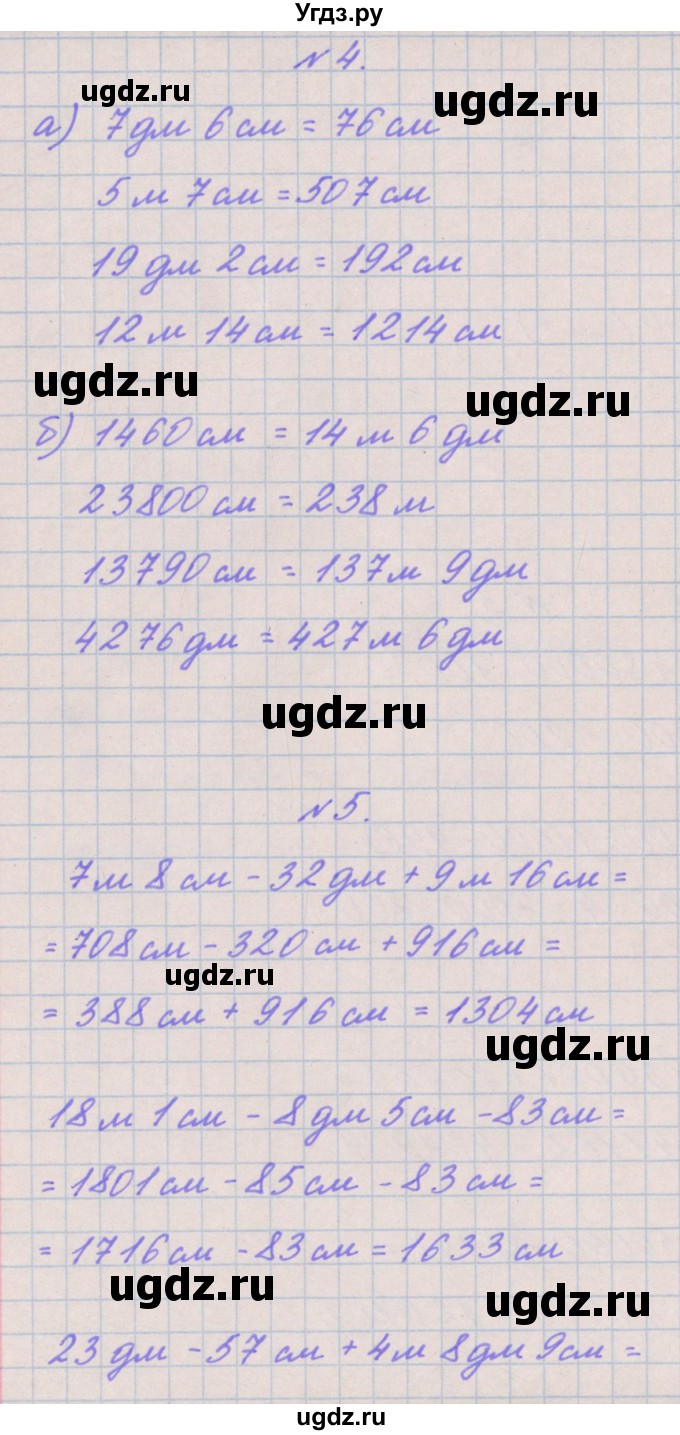 Угдз.ру
№ 4.
ugdz.ru
ugdz.ru
а) 7 дм 6 см = 76 см
5 м 7 см = 507 см
19 дм 2 см = 192 см
12 м 14 см = 1214 см
ugdz.ru
ugdz.ru
б) 1460 см = 14 м 6 дм
23800 см = 238 м
13790 см = 137 м 9 дм
4276 дм = 427 м 6 дм
ugdz.ru
№ 5.
7 м 8 см - 32 дм + 9 м 16 см =
= 708 см - 320 см + 916 см =
ugdz.ru
= 388 см + 916 см = 1304 см
ugdz.ru
18 м 1 см - 8 дм 5 см - 83 см =
= 1801 см - 85 см - 83 см =
= 1716 см - 83 см = 1633 см
ugdz.ru
ugdz.ru
23 дм - 57 см + 4 м 8 дм 9 см =
ugdz.ru